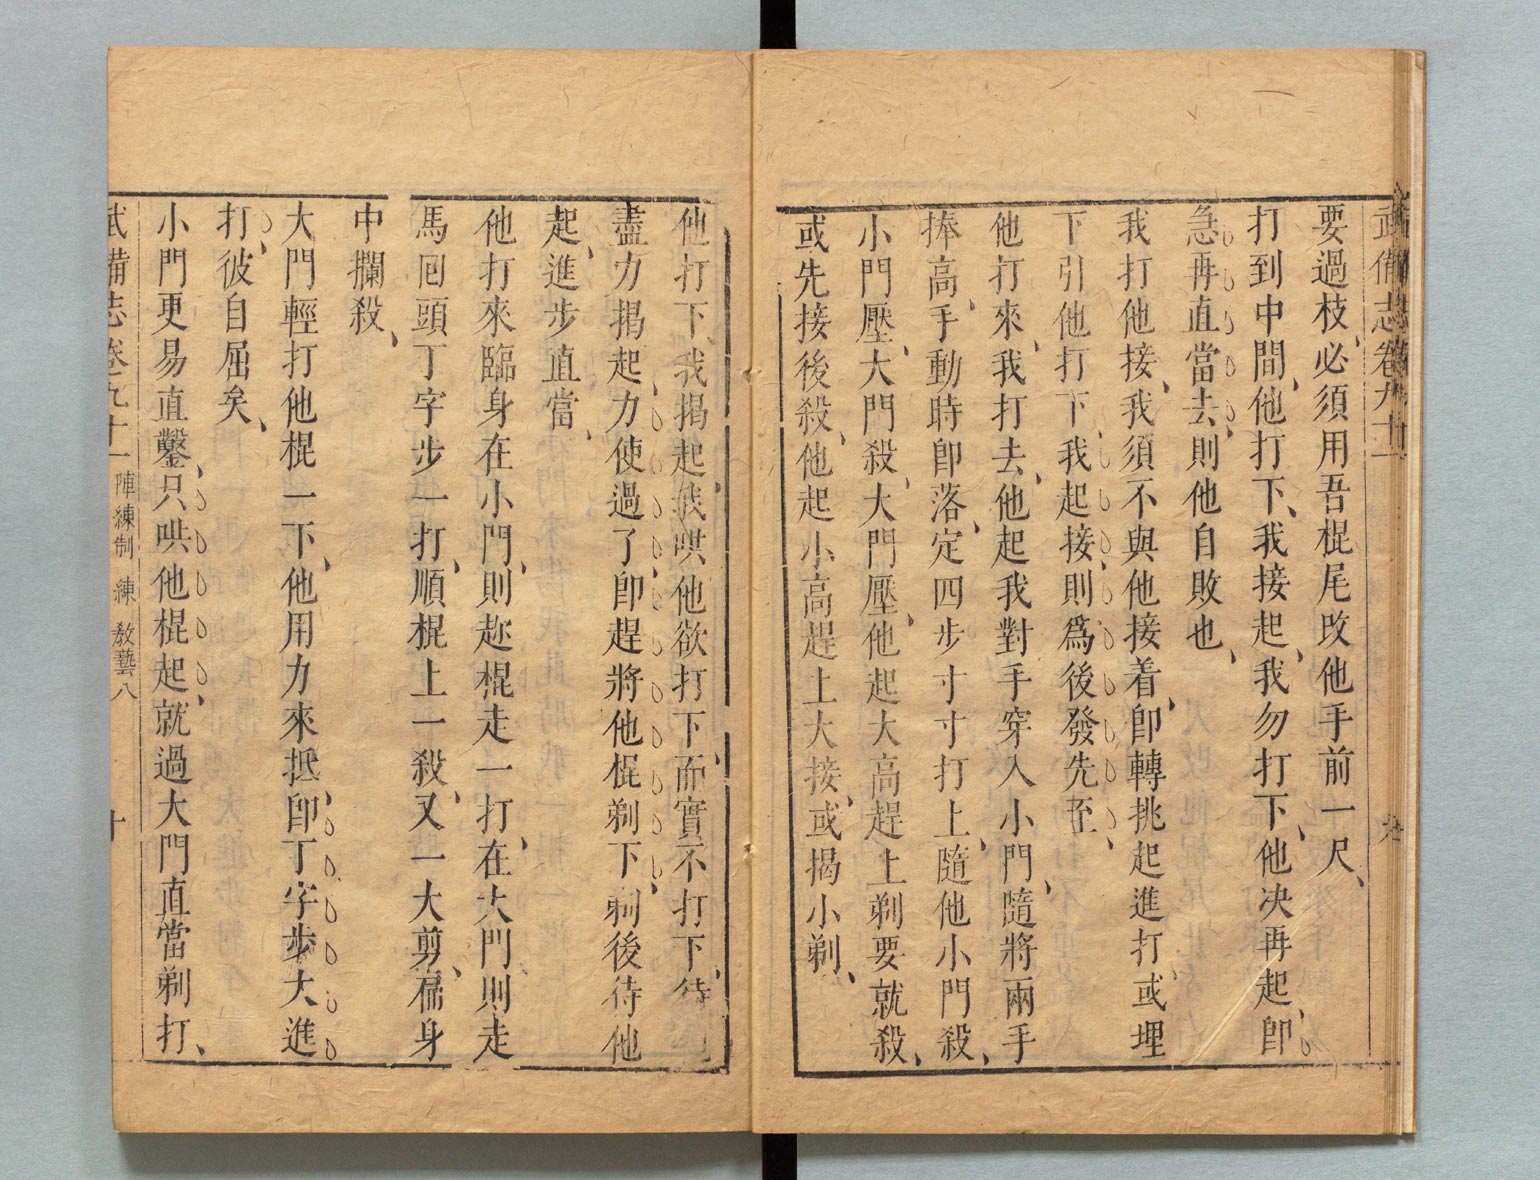 武備志卷九十一
要過枝、必須用吾棍尾改他手前一尺、
打到中間、他打下、我接起、我勿打下、他决再起、即
急再直當去、則他自敗也、
我打他接、我須不與他接着、即轉挑起進打、或埋
下引他打下、我起接、則爲後發先至、
他打來、我打去、他起我對手穿入小門、隨將兩手
捧高、手動時即落、定四步寸寸打上、隨他小門殺、
小門壓、大門殺、大門壓、他起大高趕上剃要就殺、
或先接後殺、他起小高趕上大接、或揭小剃、
他打下、我揭起、我哄他欲打下、而實不打下、待
盡力揭起、力使過了、即趕將他棍剃下、剃後待他
起、進步直當、
他打來臨身在小門、則赴棍走一打、在大門則走
馬囘頭丁字步一打、順棍上一殺、又一大剪、扁身
中攔殺、
大門輕打他棍一下、他用力來抵、即丁字步大進
打、彼自屈矣、
小門更易直鑿、只哄他棍起、就過大門直當剃打、
武備志卷九十一 陣練制 練 教藝八 十